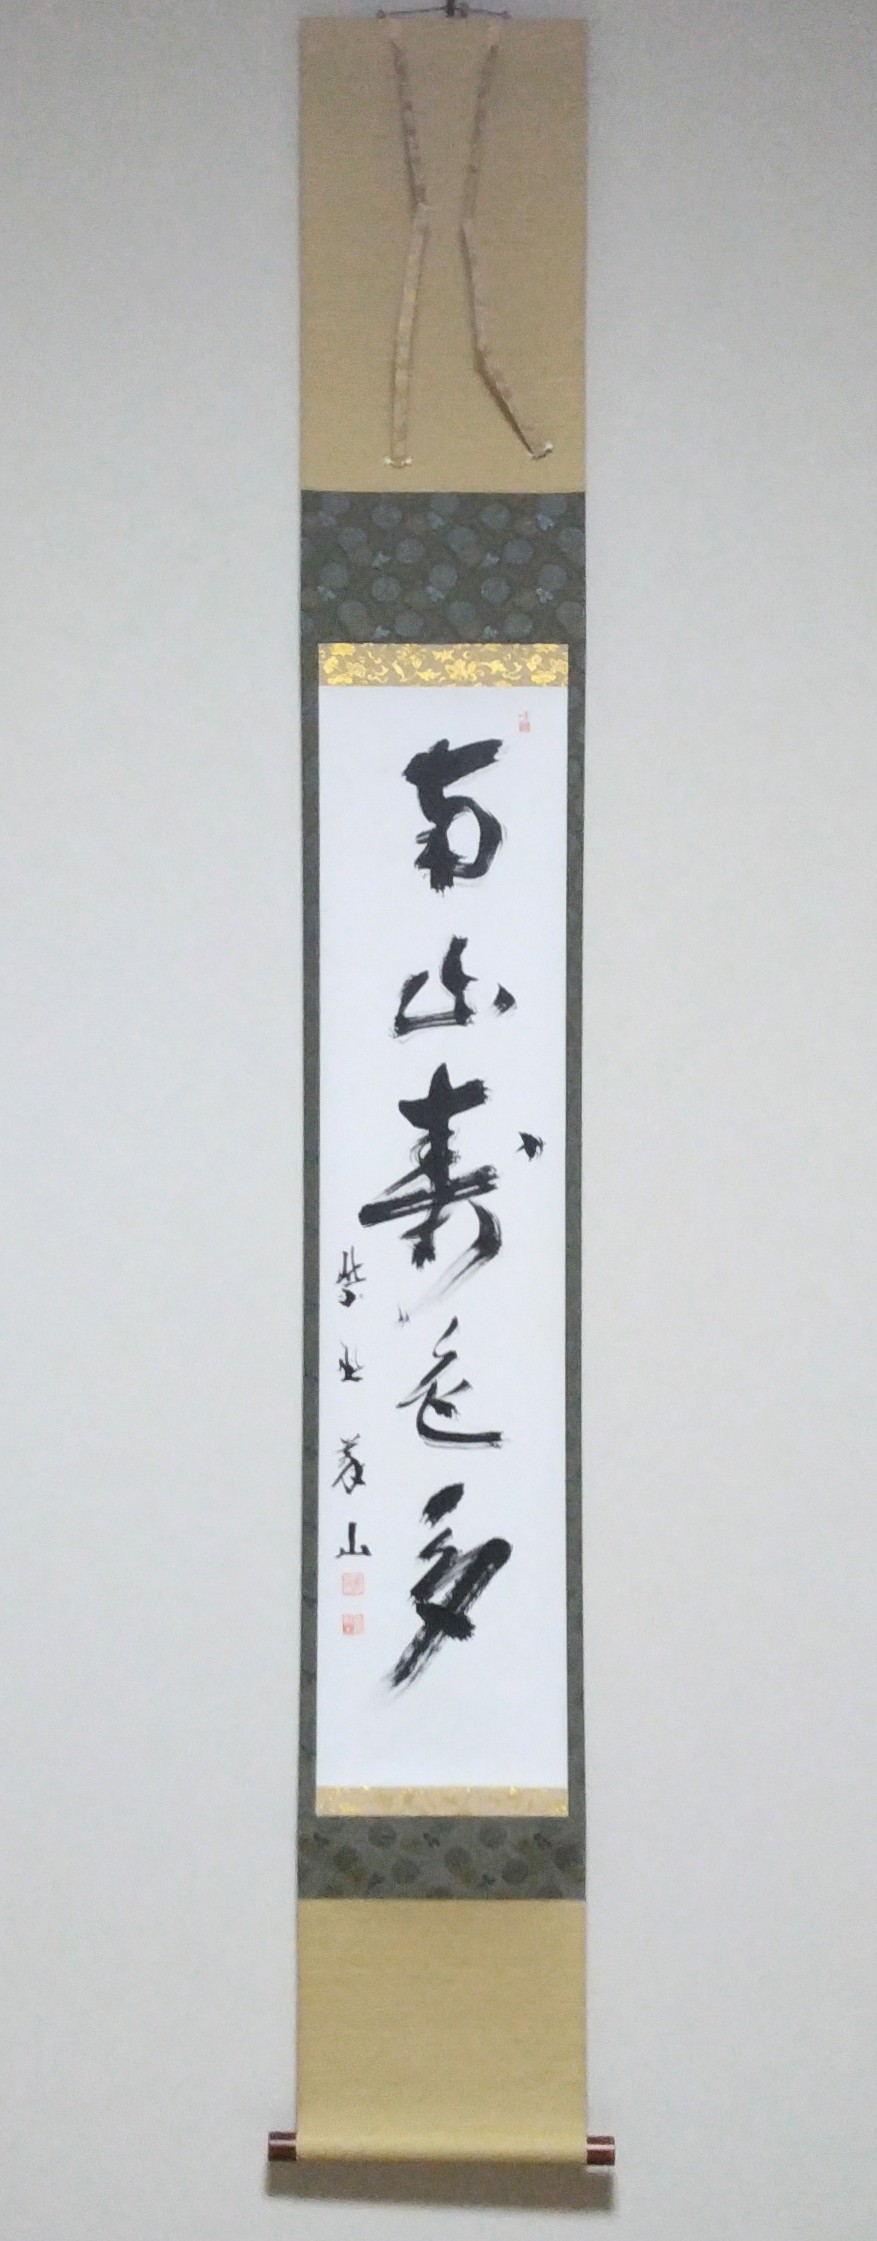 南山寿色多
紫野 義山